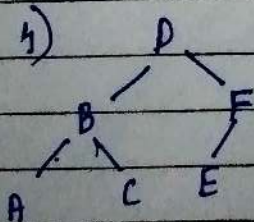 4)
D
B F
A C E